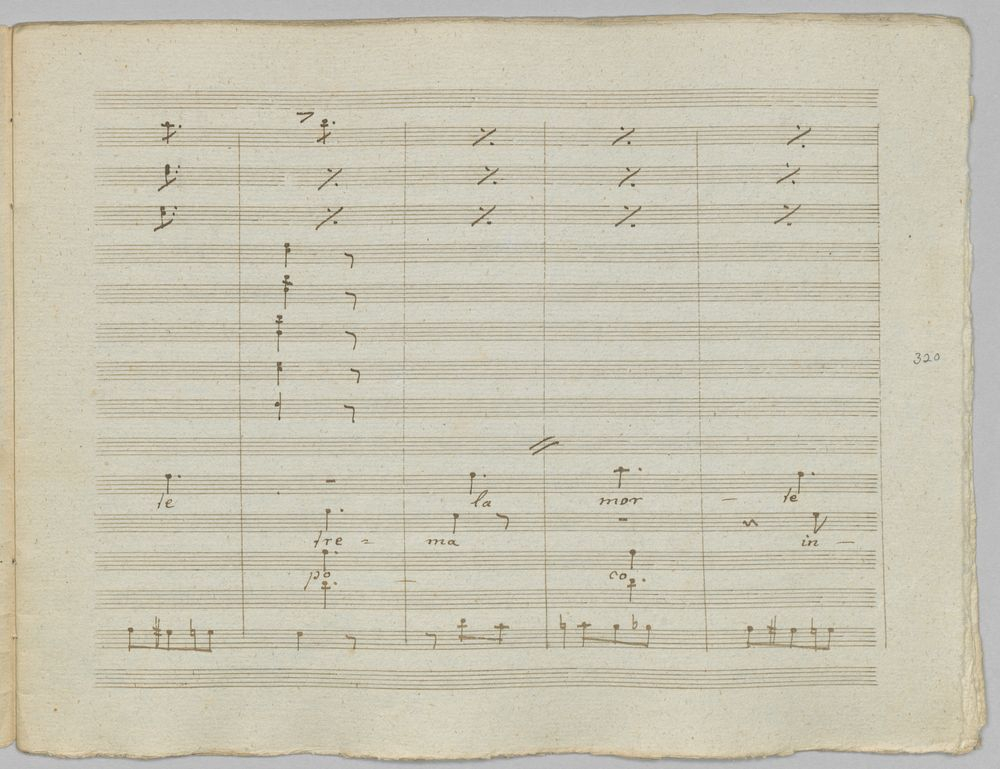 320
te la mor – te
tre = ma in –
po – co